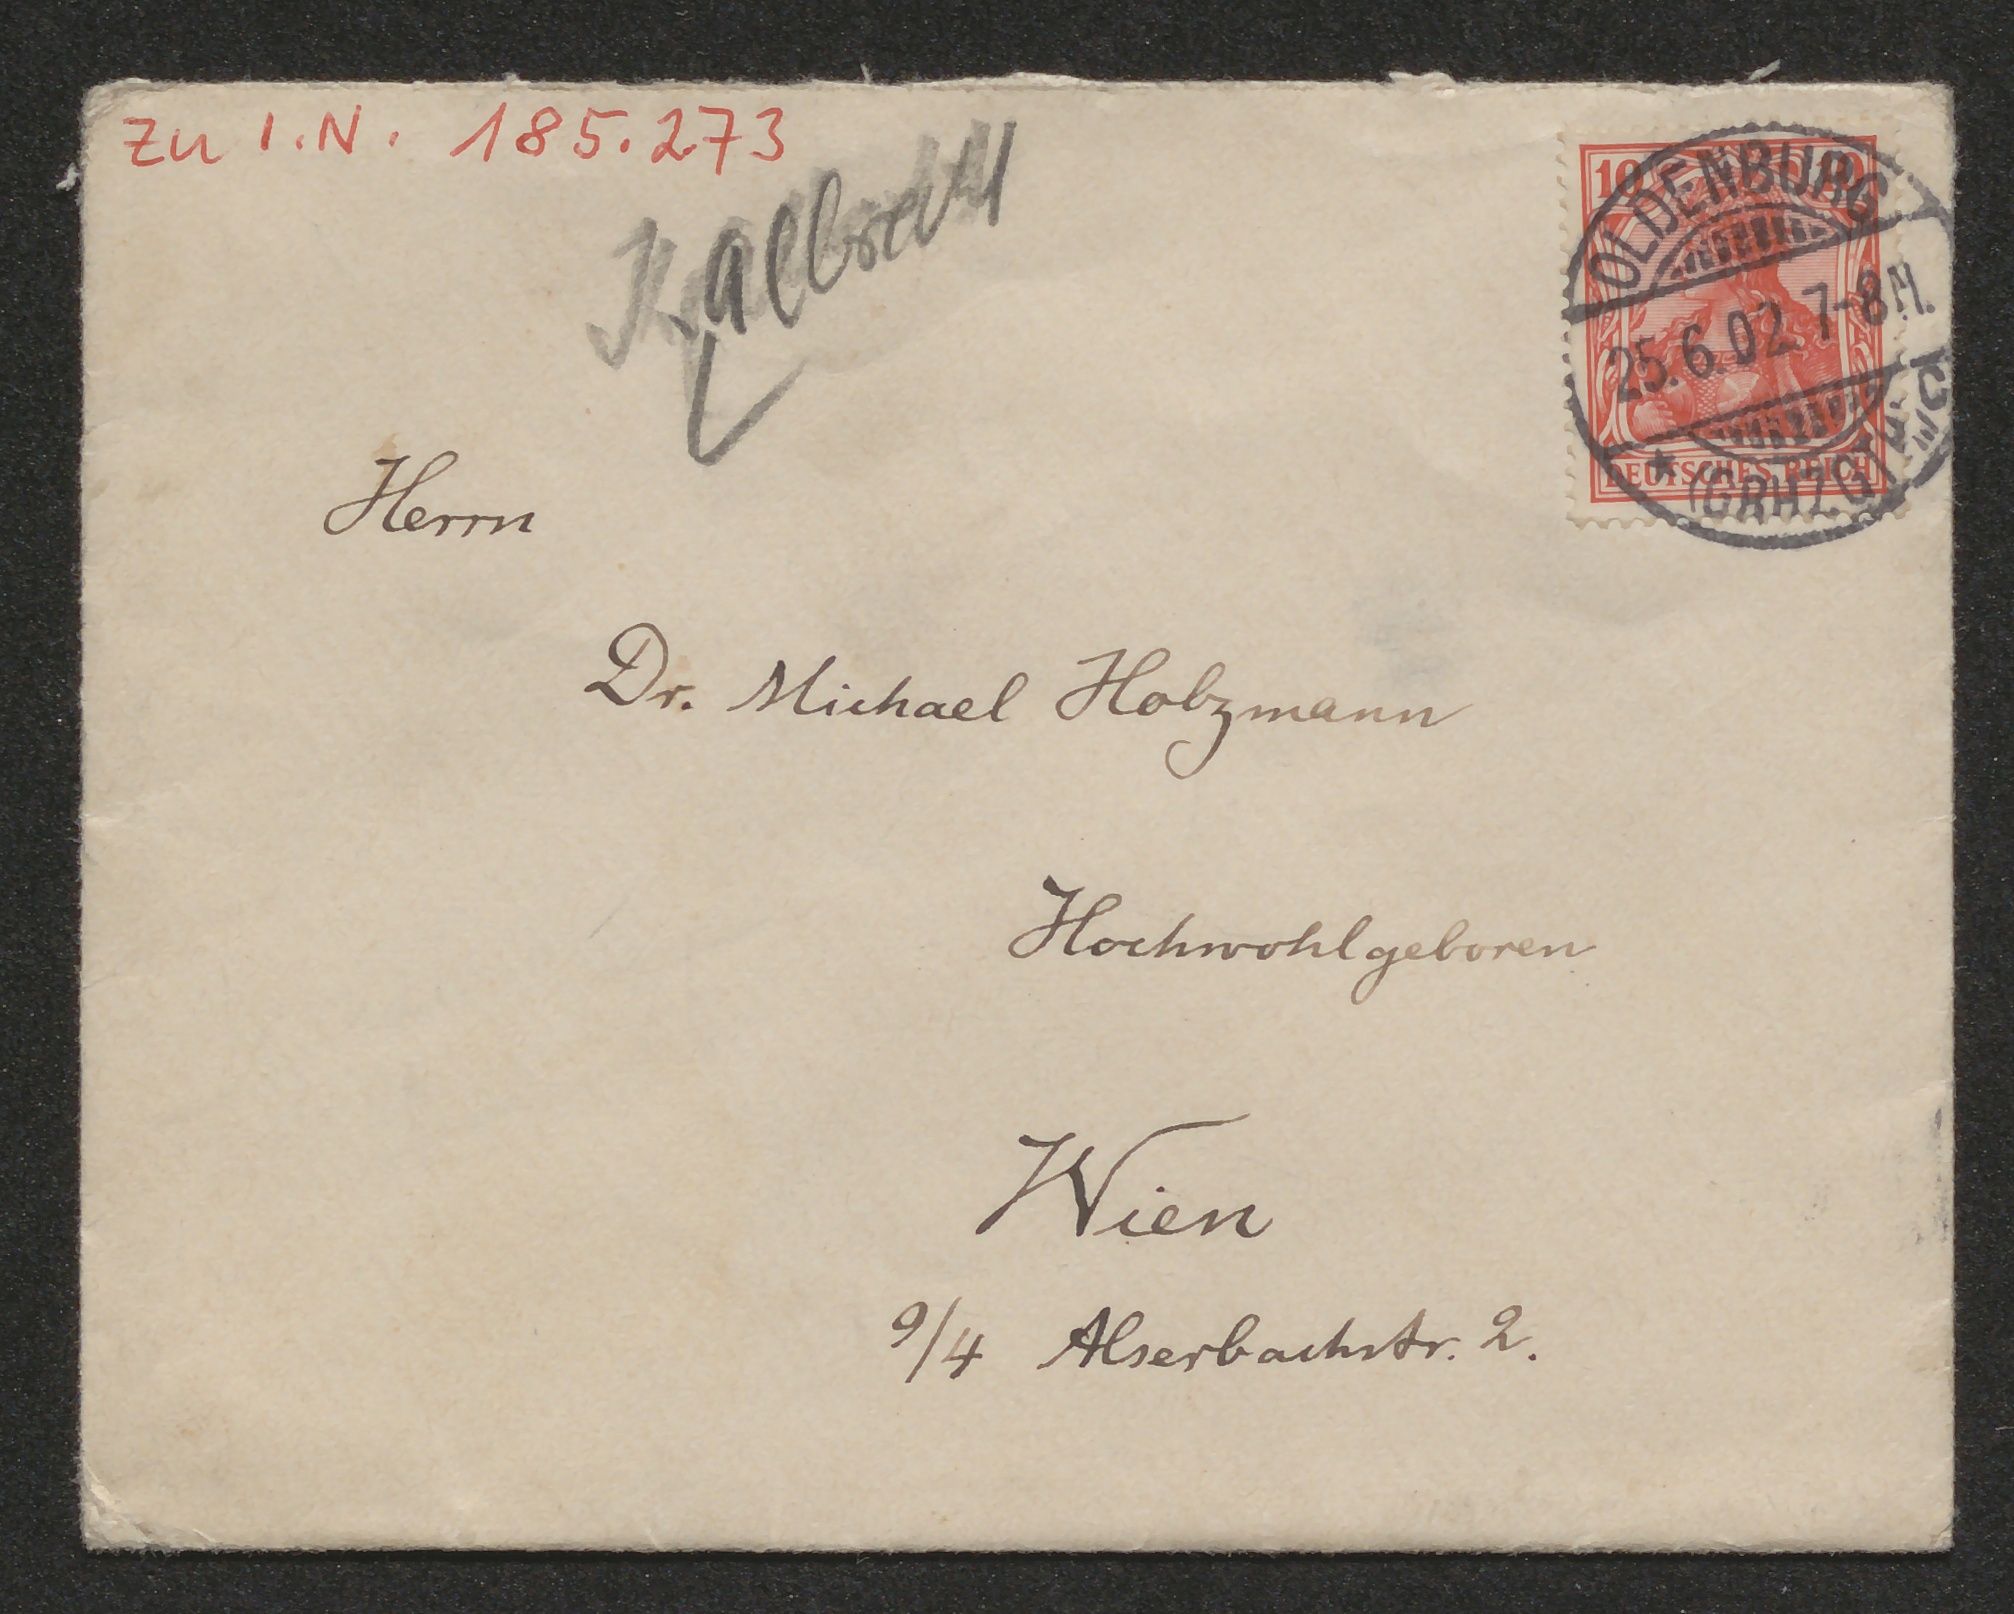 zu I.N. 185.273
K. Albrecht
10 10
DEUTSCHES REICH
OLDENBURG
25.6.02. 7-8 N.
* (GRHZGTH.)
Herrn
Dr. Michael Holzmann
Hochwohlgeboren
Wien
9/4 Alserbachstr. 2.